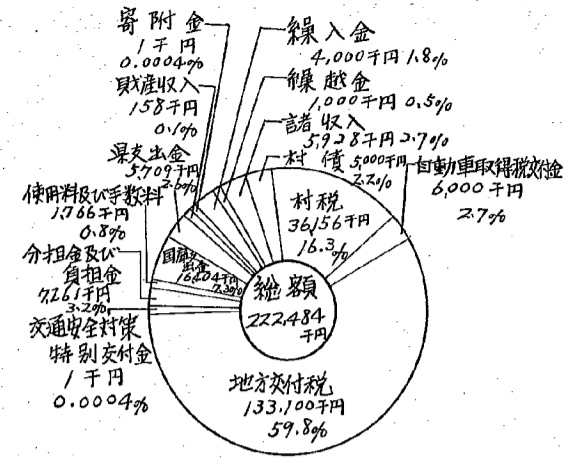 寄附金
1千円
0.0004%
財産収入
158千円
0.1%
県支出金
5,709千円
2.6%
使用料及び手数料
1,766千円
0.8%
分担金及び
負担金
7,261千円
3.2%
交通安全対策
特別交付金
1千円
0.0004%
繰入金
4,000千円 1.8%
繰越金
1,000千円 0.5%
諸収入
5,928千円 2.7%
村債 5,000千円
2.2%
自動車取得税交付金
6,000千円
2.7%
村税
36,156千円
16.3%
国庫支
出金
16,404千円
7.3%
総額
222,484
千円
地方交付税
133,100千円
59.8%